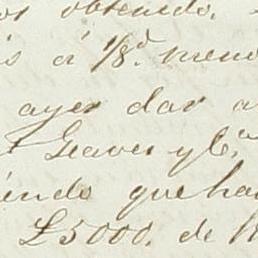 os obtenido.
s á 1/8.d meno
ayer dar a
t Leaver y Ca.
iendo que ha
£5000. de